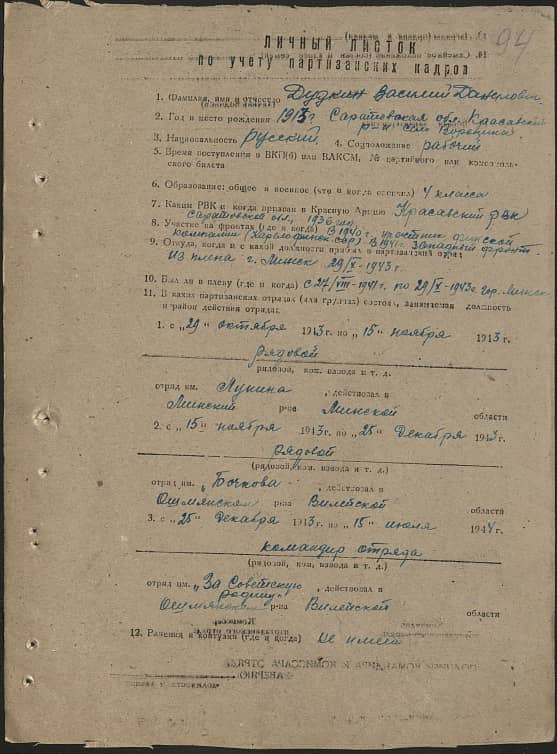 94
ЛИЧНЫЙ ЛИСТОК
по учету партизанских кадров
1. Фамилия, имя и отчество Дудкин Василий
2. Год и место рождения 1913г. Саратовская обл. Красавский
р-н
3. Национальность русский 4. Соцположение рабочий
5. Время поступления в ВКП(б) или ВЛКСМ, № партийного или комсомоль-
ского билета
6. Образование: общее и военное (что и когда окончил) 4 класса
7. Каким РВК и когда призван в Красную Армию Красавский РВК
Саратовская обл. 1936
8. Участие на фронтах (где и когда) В 1940 г. участник финской
кампании В 1941г. Западный фронт
9. Откуда, когда и с какой должности прибыл в партизанский отряд
Из плена г. Минск 29/X-1943 г.
10. Был ли в плену (где и когда) С 27/VIII-1941г. по 29/X-1943г гор. Минск
11. В каких партизанских отрядах (или группах) состоял, занимаемая должность
и район действия отряда:
1. с „29" октября 1943 г. по „15" ноября 1943 г.
рядовой
рядовой, ком. взвода и т. д.
отряд им. Лунина, действовал в
Минский р-не Минской области
2. с „15" ноября 1943 г. по „25" декабря 1943 г.
рядовой
(рядовой, ком. взвода и т. д.)
отряд им. „Бочкова", действовал в
Ошмянском р-не Вилейской области
3. с „25" декабря 1943 г. по „15" июля 1944 г.
командир отряда
(рядовой, ком. взвода и т. д.)
отряд им. „За Советскую, действовал в
Родину"
Ошмянском р-на Вилейской области
12. Ранения и контузии (где и когда) Не имею